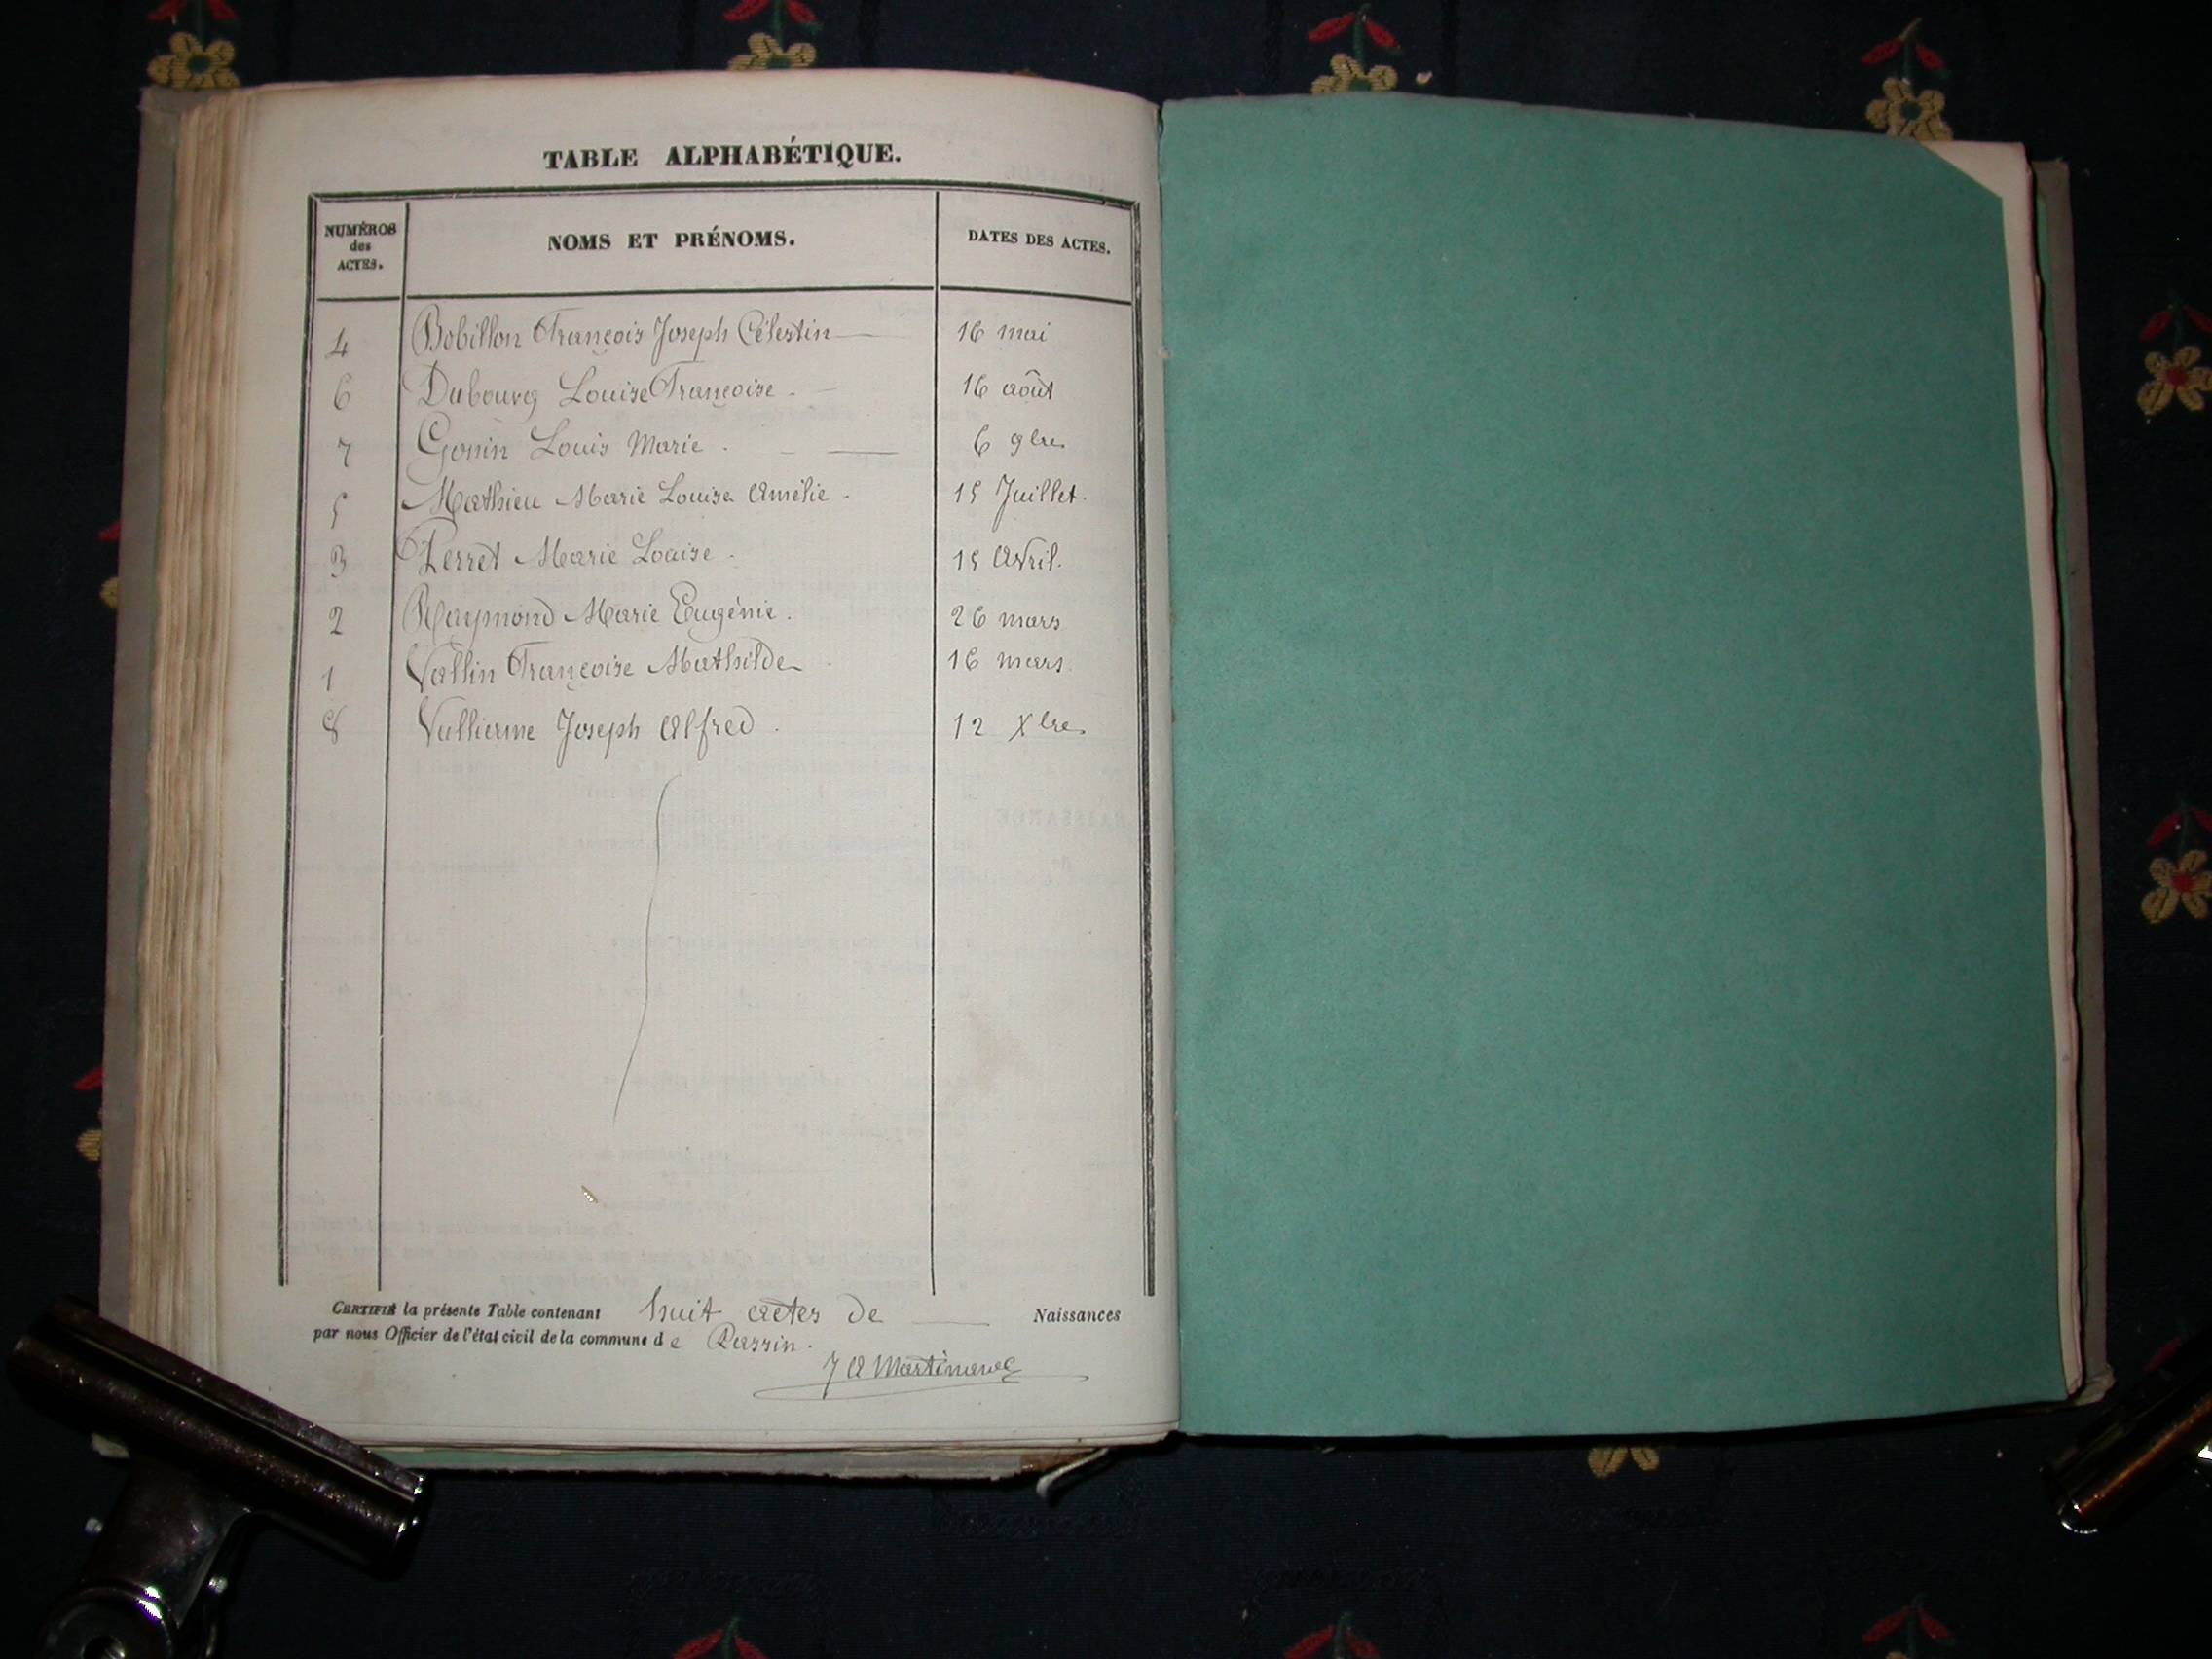 TABLE ALPHABÉTIQUE.
NUMÉROS des ACTES. NOMS ET PRÉNOMS. DATES DES ACTES.
4 Bobillon François Joseph Célestin 16 mai
6 Dubourg Louise Françoise. 16 août
7 Gonin Louis Marie. 6 9bre
5 Mathieu Marie Louise Amélie. 15 Juillet.
3 Perret Marie Louise. 15 Avril.
2 Raymond Marie Eugénie. 26 mars
1 Vallin Françoise Mathilde 16 mars.
8 Vullierme Joseph Alfred. 12 Xbre
CERTIFIÉ la présente Table contenant huit actes de Naissances
par nous Officier de l'état civil de la commune de